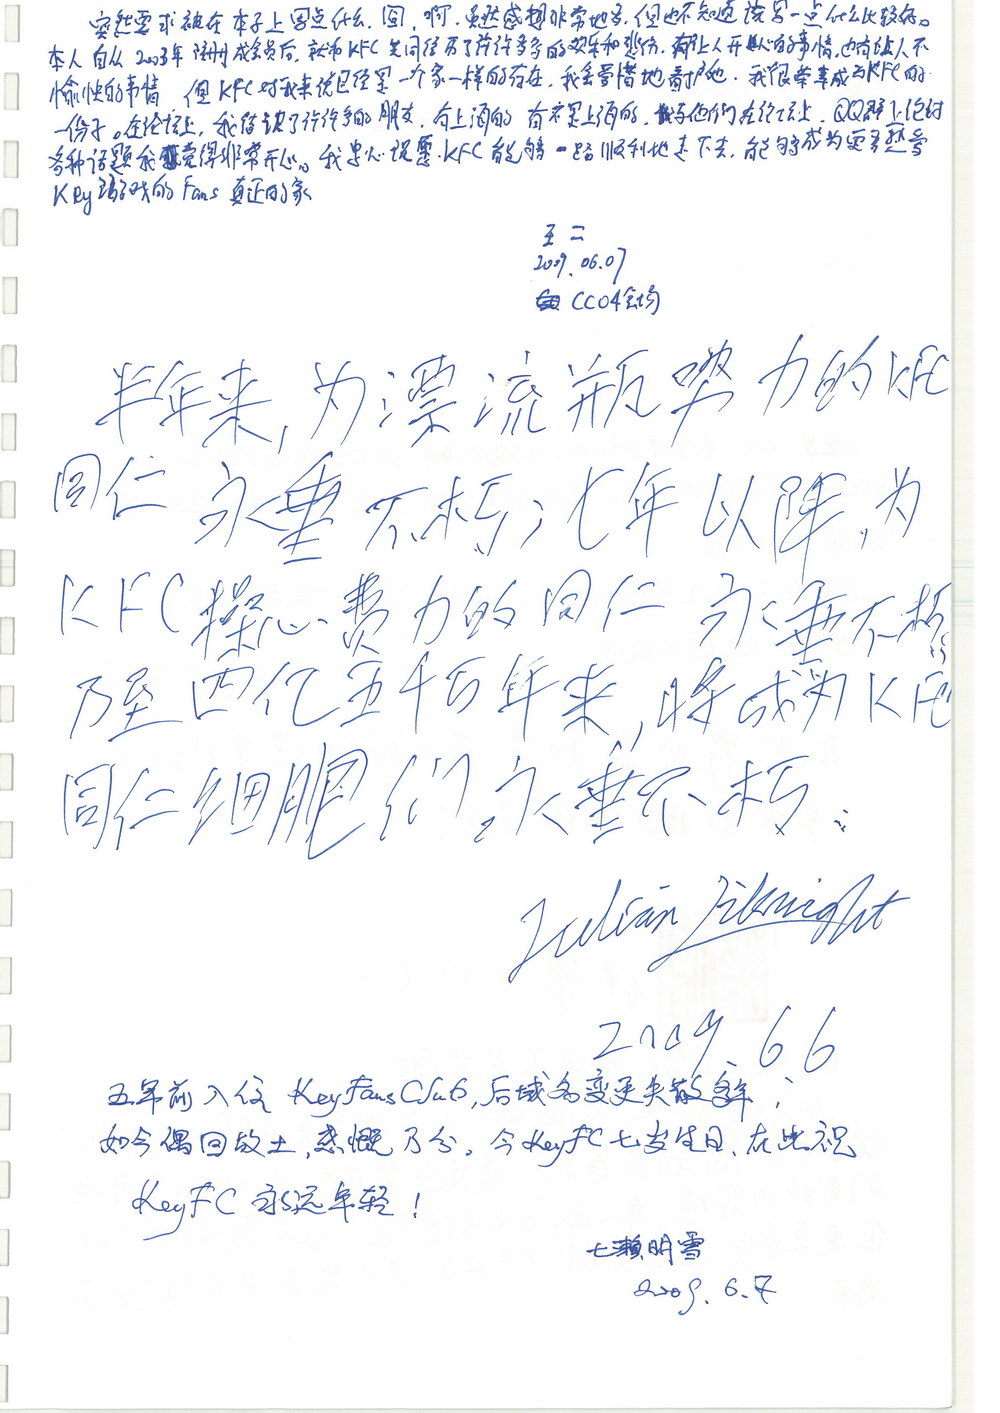 突然要求被在本子上写点什么，囧，啊，虽然感想非常地多，但也不知道该写一点什么比较好。
本人自从2003年注册成会员后，就和KFC共同经历了许许多多的欢乐和悲伤，有让人开心的事情，也有让人不
愉快的事情，但KFC对我来说已经是一个家一样的存在，我会爱惜地看护她，我很荣幸成为KFC的
一份子。在论坛上，我结识了许许多的朋友，有上海的，有不是上海的，与他们在论坛上、QQ群上论讨
各种话题我觉得非常开心。我忠心祝愿KFC能够一路顺利地走下去，能够成为更多热爱
Key游戏的Fans真正的家
王二
2009.06.07
CC04会场
半年来，为漂流瓶努力的KFC
同仁永垂不朽；七年以降，为
KFC操心费力的同仁永垂不朽；
乃至四亿五千万年来，将成为KFC
同仁细胞们，永垂不朽；
Julian Ziknight
2009.6.6
五年前入住KeyFansClub，后域名变更失散多年；
如今偶回故土，感慨万分。今KeyFC七岁生日，在此祝
KeyFC永远年轻！
七瀬明雪
2009.6.7